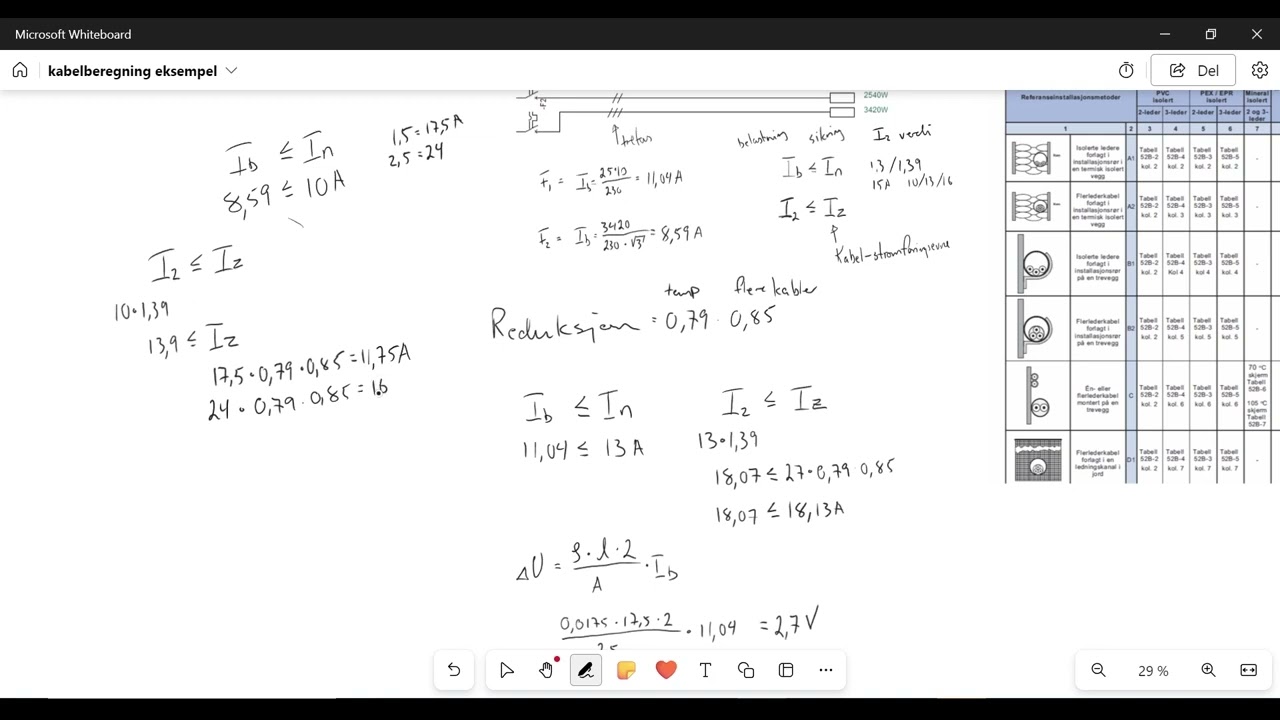 Microsoft Whiteboard
kabelberegning eksempel
Del
1,5 = 17,5 A
2,5 = 24
Ib ≤ In
8,59 ≤ 10A
I2 ≤ Iz
10•1,39
13,9 ≤ Iz
17,5 • 0,79 • 0,85 = 11,75A
24 • 0,79 . 0,85 = 1.6
F2
2540W
3420W
trefas
belastning sikring Iz verdi
Ib ≤ In
1.3 / 1,39
15A 10/13/16
I2 ≤ Iz
Kabel-strømføringsevne
F1 = Ib = 2540/230 = 11,04 A
F2 = Ib = 3420/230 · √3 = 8,59 A
temp flere kabler
Reduksjon = 0,79 . 0,85
Ib ≤ In
11,04 ≤ 13 A
I2 ≤ Iz
13•1,39
18,07 ≤ 27•0,79•0,85
18,07 ≤ 18,13A
ΔU = ρ·l·2/A · Ib
0,0175 · 17,5 · 2 • 11,04 = 2,7 V
Referanseinstallasjonsmetoder
PVC isolert
PEX / EPR isolert
Mineral isolert
2-leder 3-leder 2-leder 3-leder 2 og 3-leder
1 2 3 4 5 6 7
Isolerte ledere forlagt i installasjonsrør i en termisk isolert vegg
A1
Tabell 52B-2 kol. 2
Tabell 52B-4 kol. 2
Tabell 52B-3 kol. 2
Tabell 52B-5 kol. 2
-
Flerlederkabel forlagt i installasjonsrør i en termisk isolert vegg
A2
Tabell 52B-2 kol. 2
Tabell 52B-4 kol. 3
Tabell 52B-3 kol. 3
Tabell 52B-5 kol. 3
-
Isolerte ledere forlagt i installasjonsrør på en trevegg
B1
Tabell 52B-2 kol. 2
Tabell 52B-4 Kol 4
Tabell 52B-3 kol 4
Tabell 52B-5 kol. 4
-
Flerlederkabel forlagt i installasjonsrør på en trevegg
B2
Tabell 52B-2 kol. 2
Tabell 52B-4 kol. 5
Tabell 52B-3 kol. 5
Tabell 52B-5 kol. 5
-
Én- eller flerlederkabel montert på en trevegg
C
Tabell 52B-2 kol. 2
Tabell 52B-4 kol. 6
Tabell 52B-3 kol. 6
Tabell 52B-5 kol. 6
70 °C skjerm Tabell 52B-6
105 °C skjerm Tabell 52B-7
Flerlederkabel forlagt i en ledningskanal i jord
D1
Tabell 52B-2 kol. 2
Tabell 52B-4 kol. 7
Tabell 52B-3 kol. 7
Tabell 52B-5 kol. 7
-
29 %